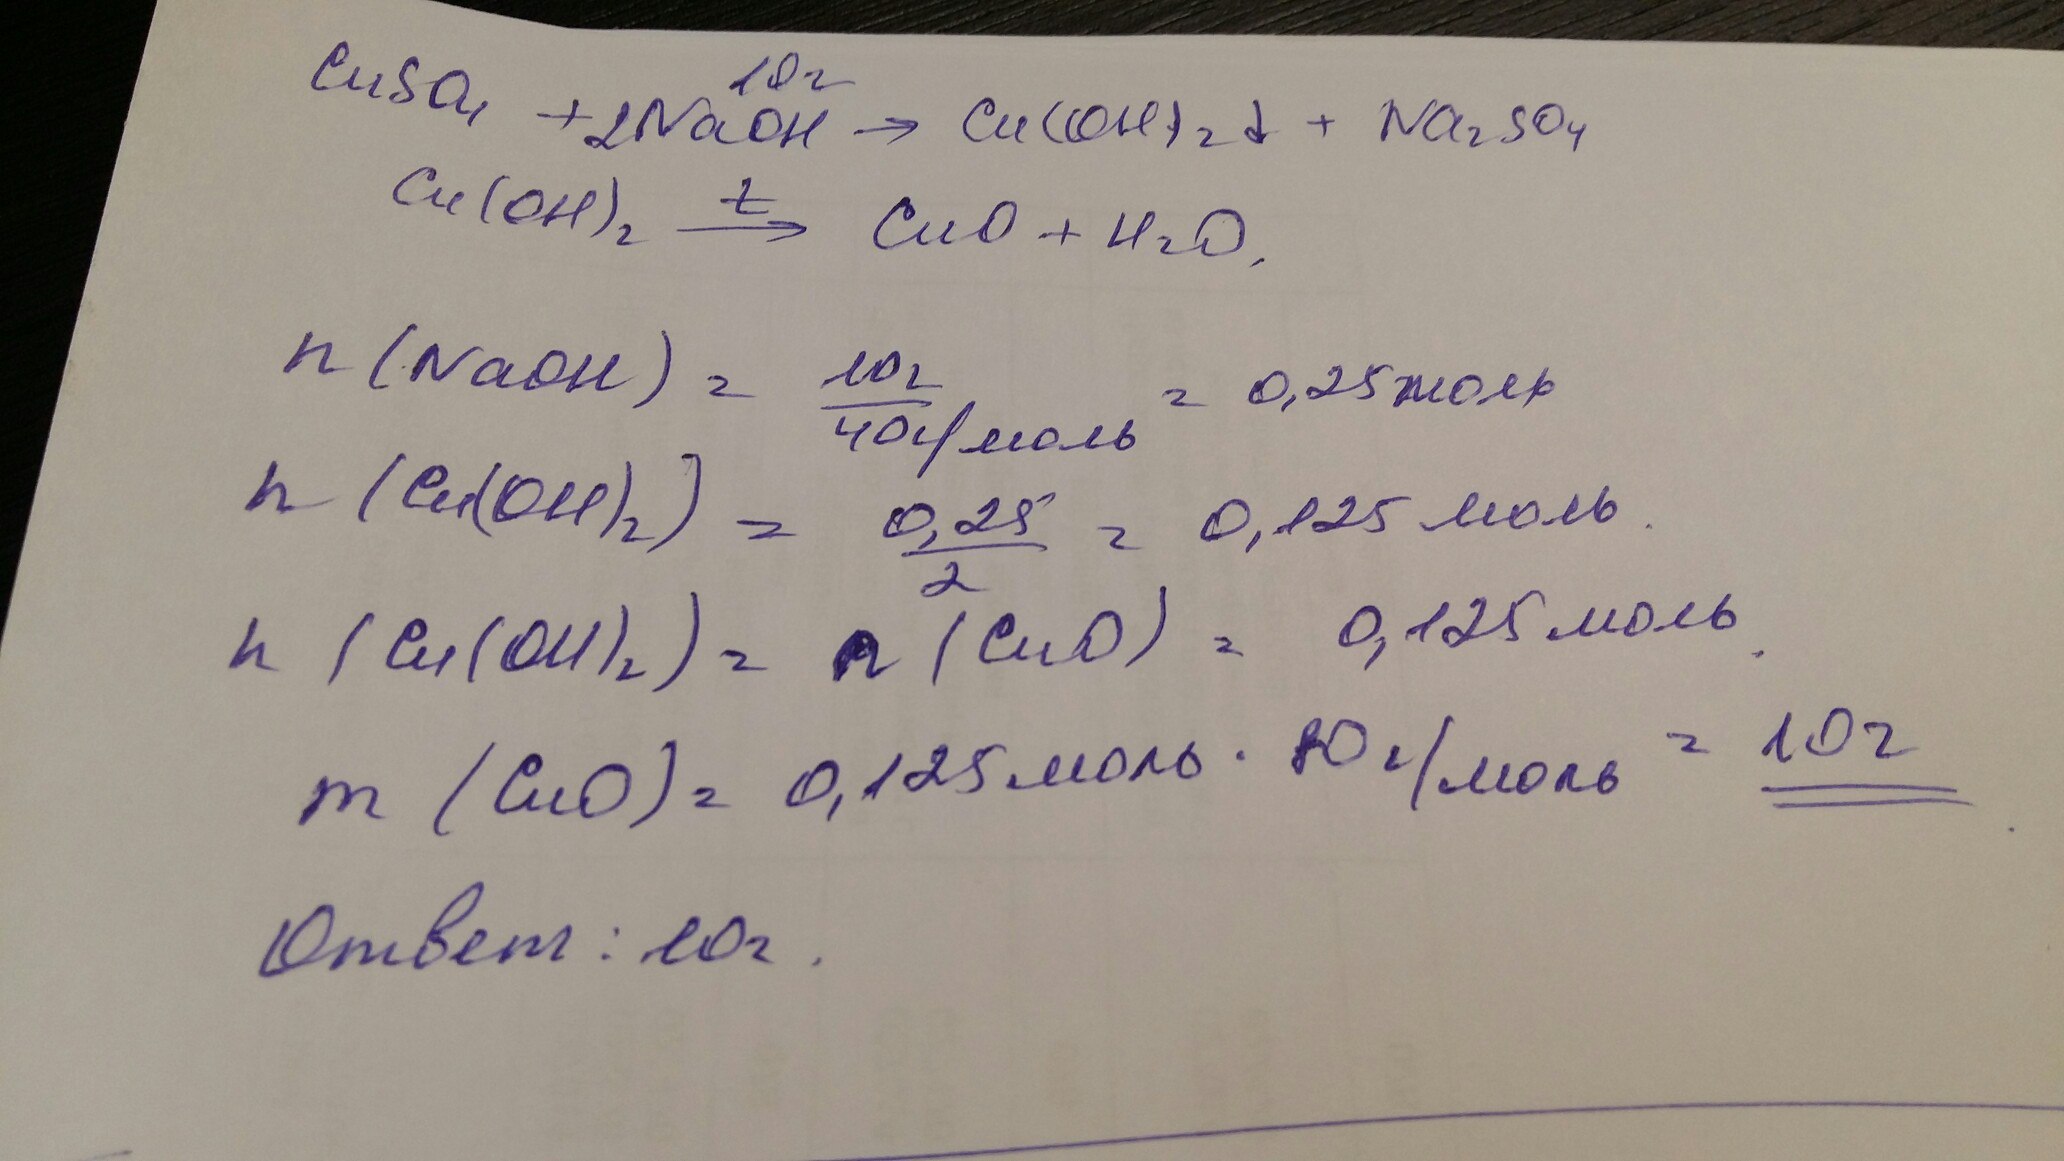 10г
CuSO₄ + 2NaOH → Cu(OH)₂↓ + Na₂SO₄
Cu(OH)₂ —t→ CuO + H₂O.
n(NaOH) = 10г / 40г/моль = 0,25 моль
n(Cu(OH)₂) = 0,25 / 2 = 0,125 моль.
n(Cu(OH)₂) = n(CuO) = 0,125 моль.
m(CuO) = 0,125 моль · 80 г/моль = 10г
Ответ: 10г.